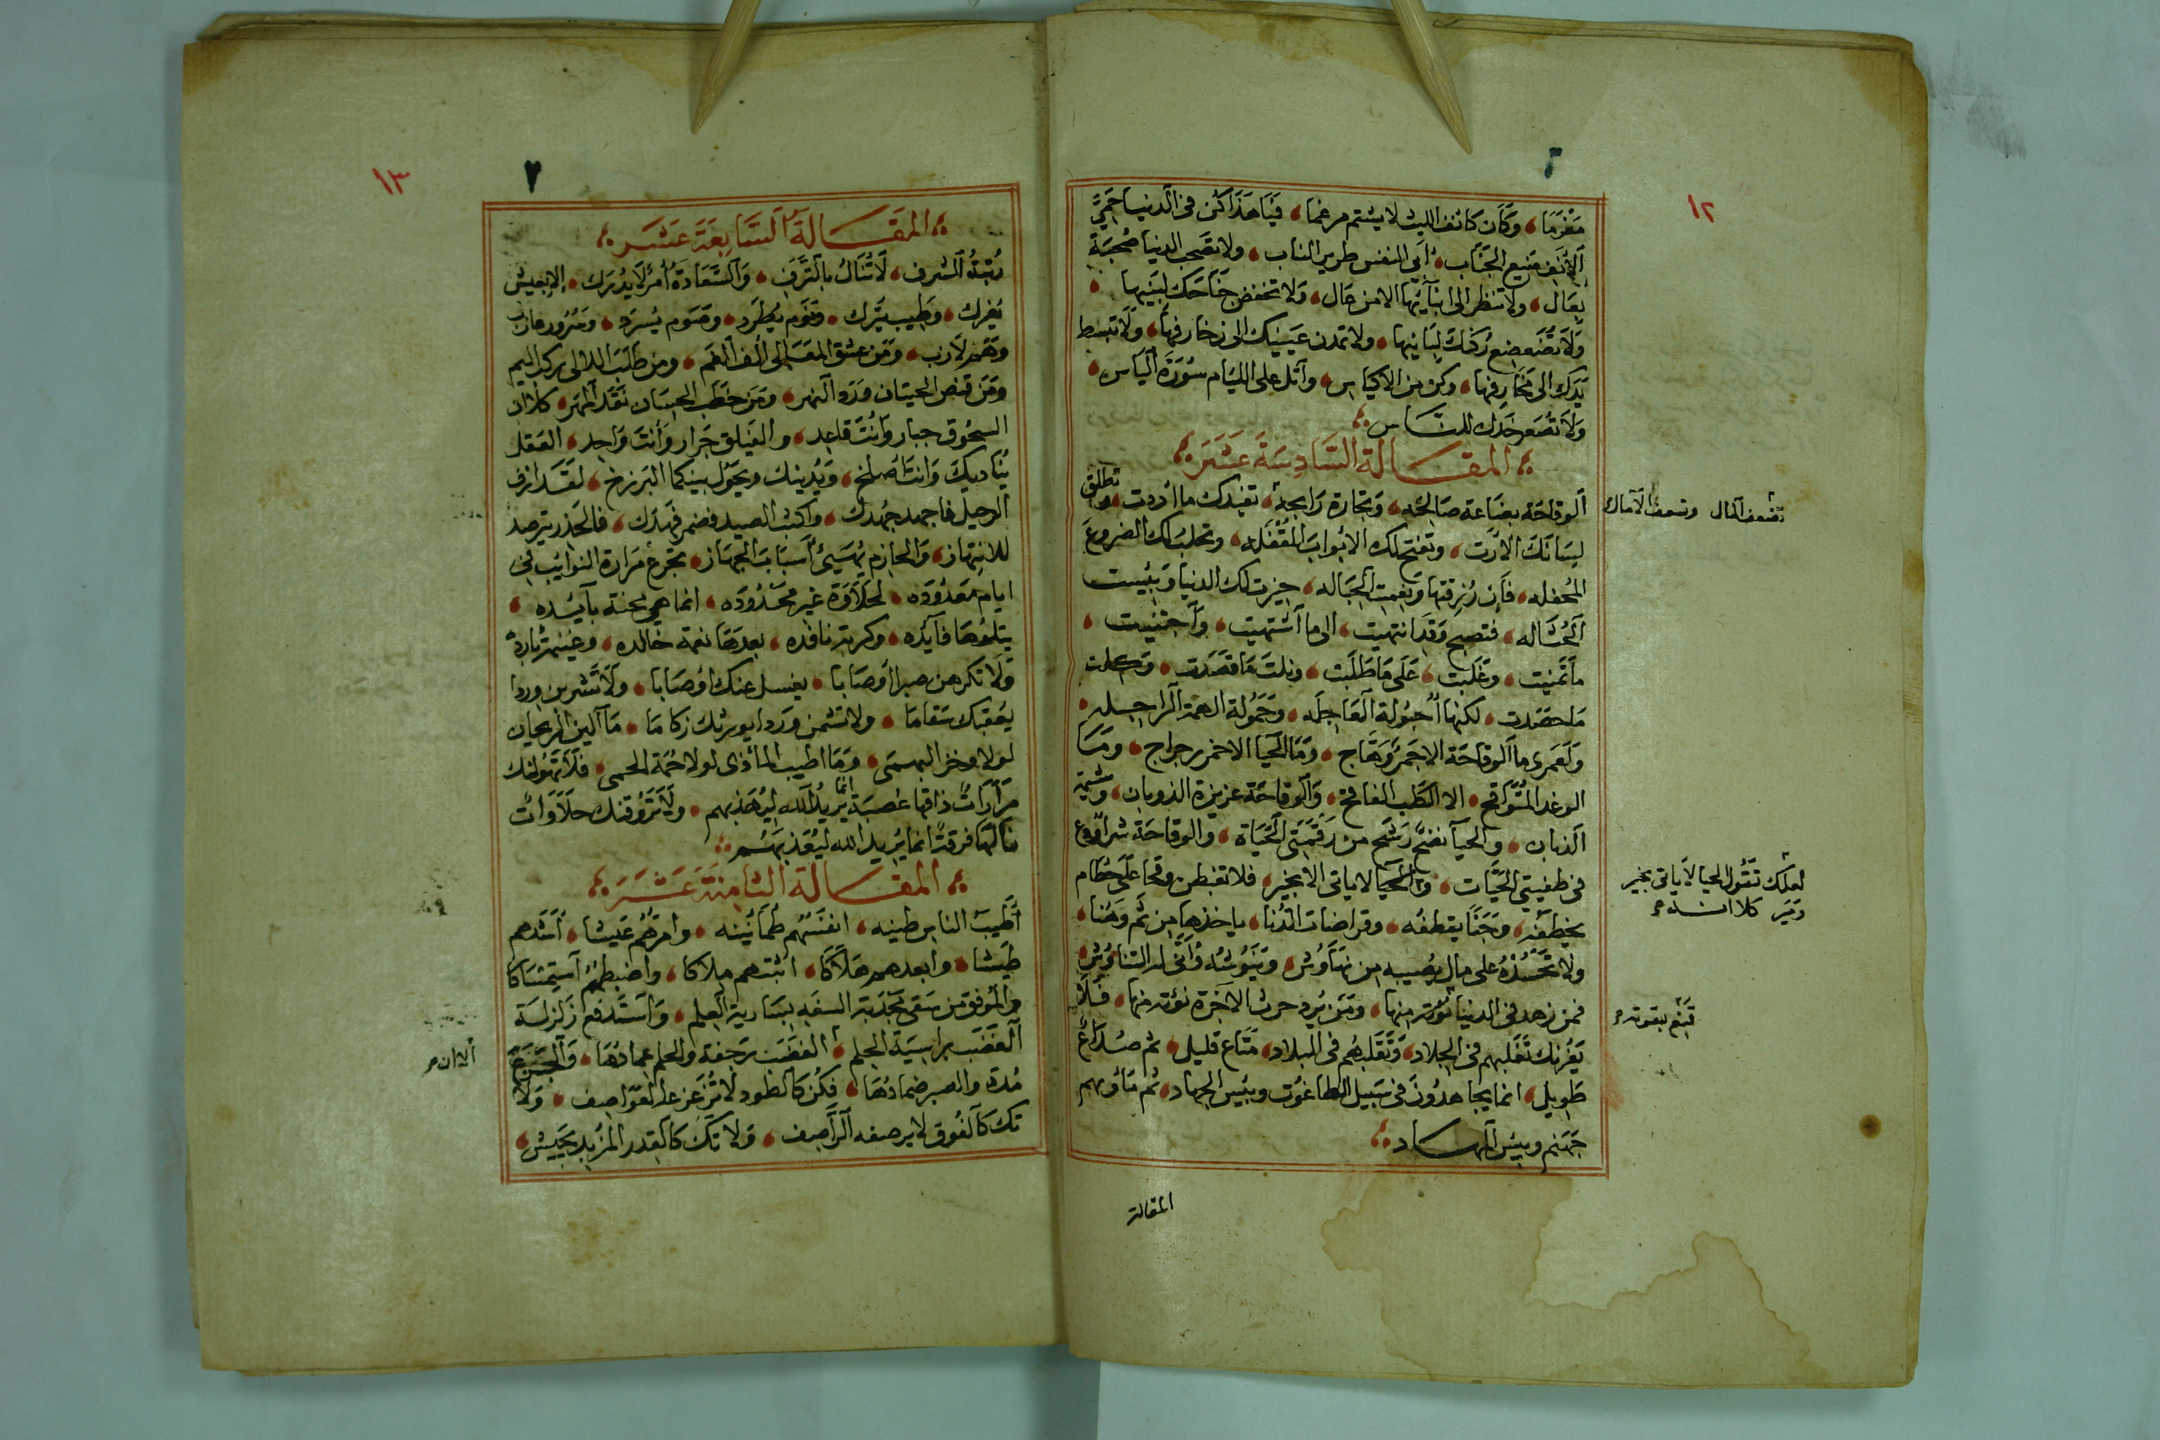 ١٢
مَغْرَمَا وكَان كانف الليث لا يشتم مرغما فيا هذا كن في الدنيا حَمِيَّ
الأنف منيع الجناب أبي النفس طرير الناب ولا تصحب الدنيا صُحبَة
بعال ولا تنظر الى ابنآئها الا من عال ولا تخفض جناحك لبنيها
ولا تُضَعضِع ركنك لبانيها ولا تمدن عينيك الى زخارفها ولا تبسط
يدك الى مخارفها وكن من الاكياس واتل على اللئام سورة الياس
ولا تُصَعِر خدك للناس
المقالة السَّادِسَةَ عَشَرَ
الوقاحة بضاعة صالحه وتجارة رابحة تفيدك ما اردت وتطلق
لسانك الأرَت وتفتح لك الابواب المُقفَله وتحلب لك الضروعَ
المُحفله فإن رُزِقتها ونعمت الجِباله حيزت لك الدنيا وبئيست
الحُثاله فتصبح وقد انتهيت الى ما اشتهيت واجتنيت
ما تمنيت وغلبت على ما طلبت ونلت ما قصدت وكلت
ما حصدت لكنها أحبولة العاجله وحمولة الهمة الراجله
ولعمري ما الوقاحة الا جَمرٌ وَهَّاج وما الحيا الا خمر رجراج وما
الوغد المُتَواقح الا الكلب الفاقح والوقاحة عزيزة الذوبان وشيمة
الذباب والحيآ نضحٌ رشح من رقمتي الحياة والوقاحة شر افرغ
في طفيتي الحيَّات والحيا لا ياتى الا بخير فلا تغبطن وقحا على حُطام
يخطفه وجَنًا يقطفه وقراضات الدُنا ياخذها من ثَم وهُنا
ولا تحسُدْهُ على مال يُصيبه من نهاوش وينوشه وأنى له التناوش
فمن زهد في الدنيا نؤته منها ومن يرد حرث الآخرة نؤته منها فلا
يغرنك تغلبهم في الجلاد وتقلبهم في البلاد متاع قليل ثم صداع
طويل انما يجاهدون في سبيل الطاغوت وبئيس الجهاد ثم مأويهم
جهنم وبيس المهاد
تضعف المال وتسعف الآمال
لعلك تقول الحيا لا ياتى بخير
المقالة
١٣
المقالة السَّابِعَة عَشَر
رُتبةُ الشرف لا تُنَالُ بالتَرَف والسَّعادة أمرٌ لا يُدرَك إلا بعيش
يُفرك وطيب يترك ونوم يُطرَد وصوم يُسرَد وسُرور عازب
وهم لازب ومن عشق المعالى الف الغم ومن طلب اللالى ركب اليم
ومن قنص الحيتان ورد النهر ومن خطب الحسان نقد المهر كلا ان
السحوق جبار وانت قاعد والفيلق جرار وأنت واحد العقل
يُناديك وانت أصلخ ويُدنيك ويحول بينكما البرزخ لقد ازف
الرحيل فاجهد جهدك واكثب الصيد فضمر فهدك فالحذر يترصد
للانتهاز والحازم يُهيىُ أسباب الجهاز تجرع مرارة النوايب في
ايام معدُودَه لحلاوة غير محدُودَه انما هي محنة بآئده
يتلُوهَا فآئده وكربة نافده بعدها نعمة خالده وغنيمة باردة
ولا تكرهن صبرا أو صابا يغسل عنك أوصابا ولا تشربن وردا
يعقبك سقاما ولا تشمن وردا يورثك زكاما ما الين الريحان
لولا وخز البهمى وما اطيب الماذى لولا حُمة الحمى فلا تهولنك
مراراتٌ ذاقها عُصبة انما يريد الله ليُهذبهم ولا تروقنك حلاوات
نالها فرقة انما يريد الله ليُعَذِبَهُم
المقالة الثامِنَة عَشَر
أطيب الناس طينه انفسُهم طُمأنينه وامرهُم عيشا أشدهم
طيشا وابعدهم هلاكا اثبتهم ملاكا واضبطهُم استمساكا
والموفق من سقى مجدبة السفه بسارية العلم واستدفع زلزلة
الغضب براسية الحلم الغضب رجفة والحلم عمادُها والجزع
مُدة والصبر ضمادُها فكن كالطود لا تُزعزعه العواصف ولا
تك كالفوق لا يرصفه الراصف ولا تك كالقدر المزبد بجيش